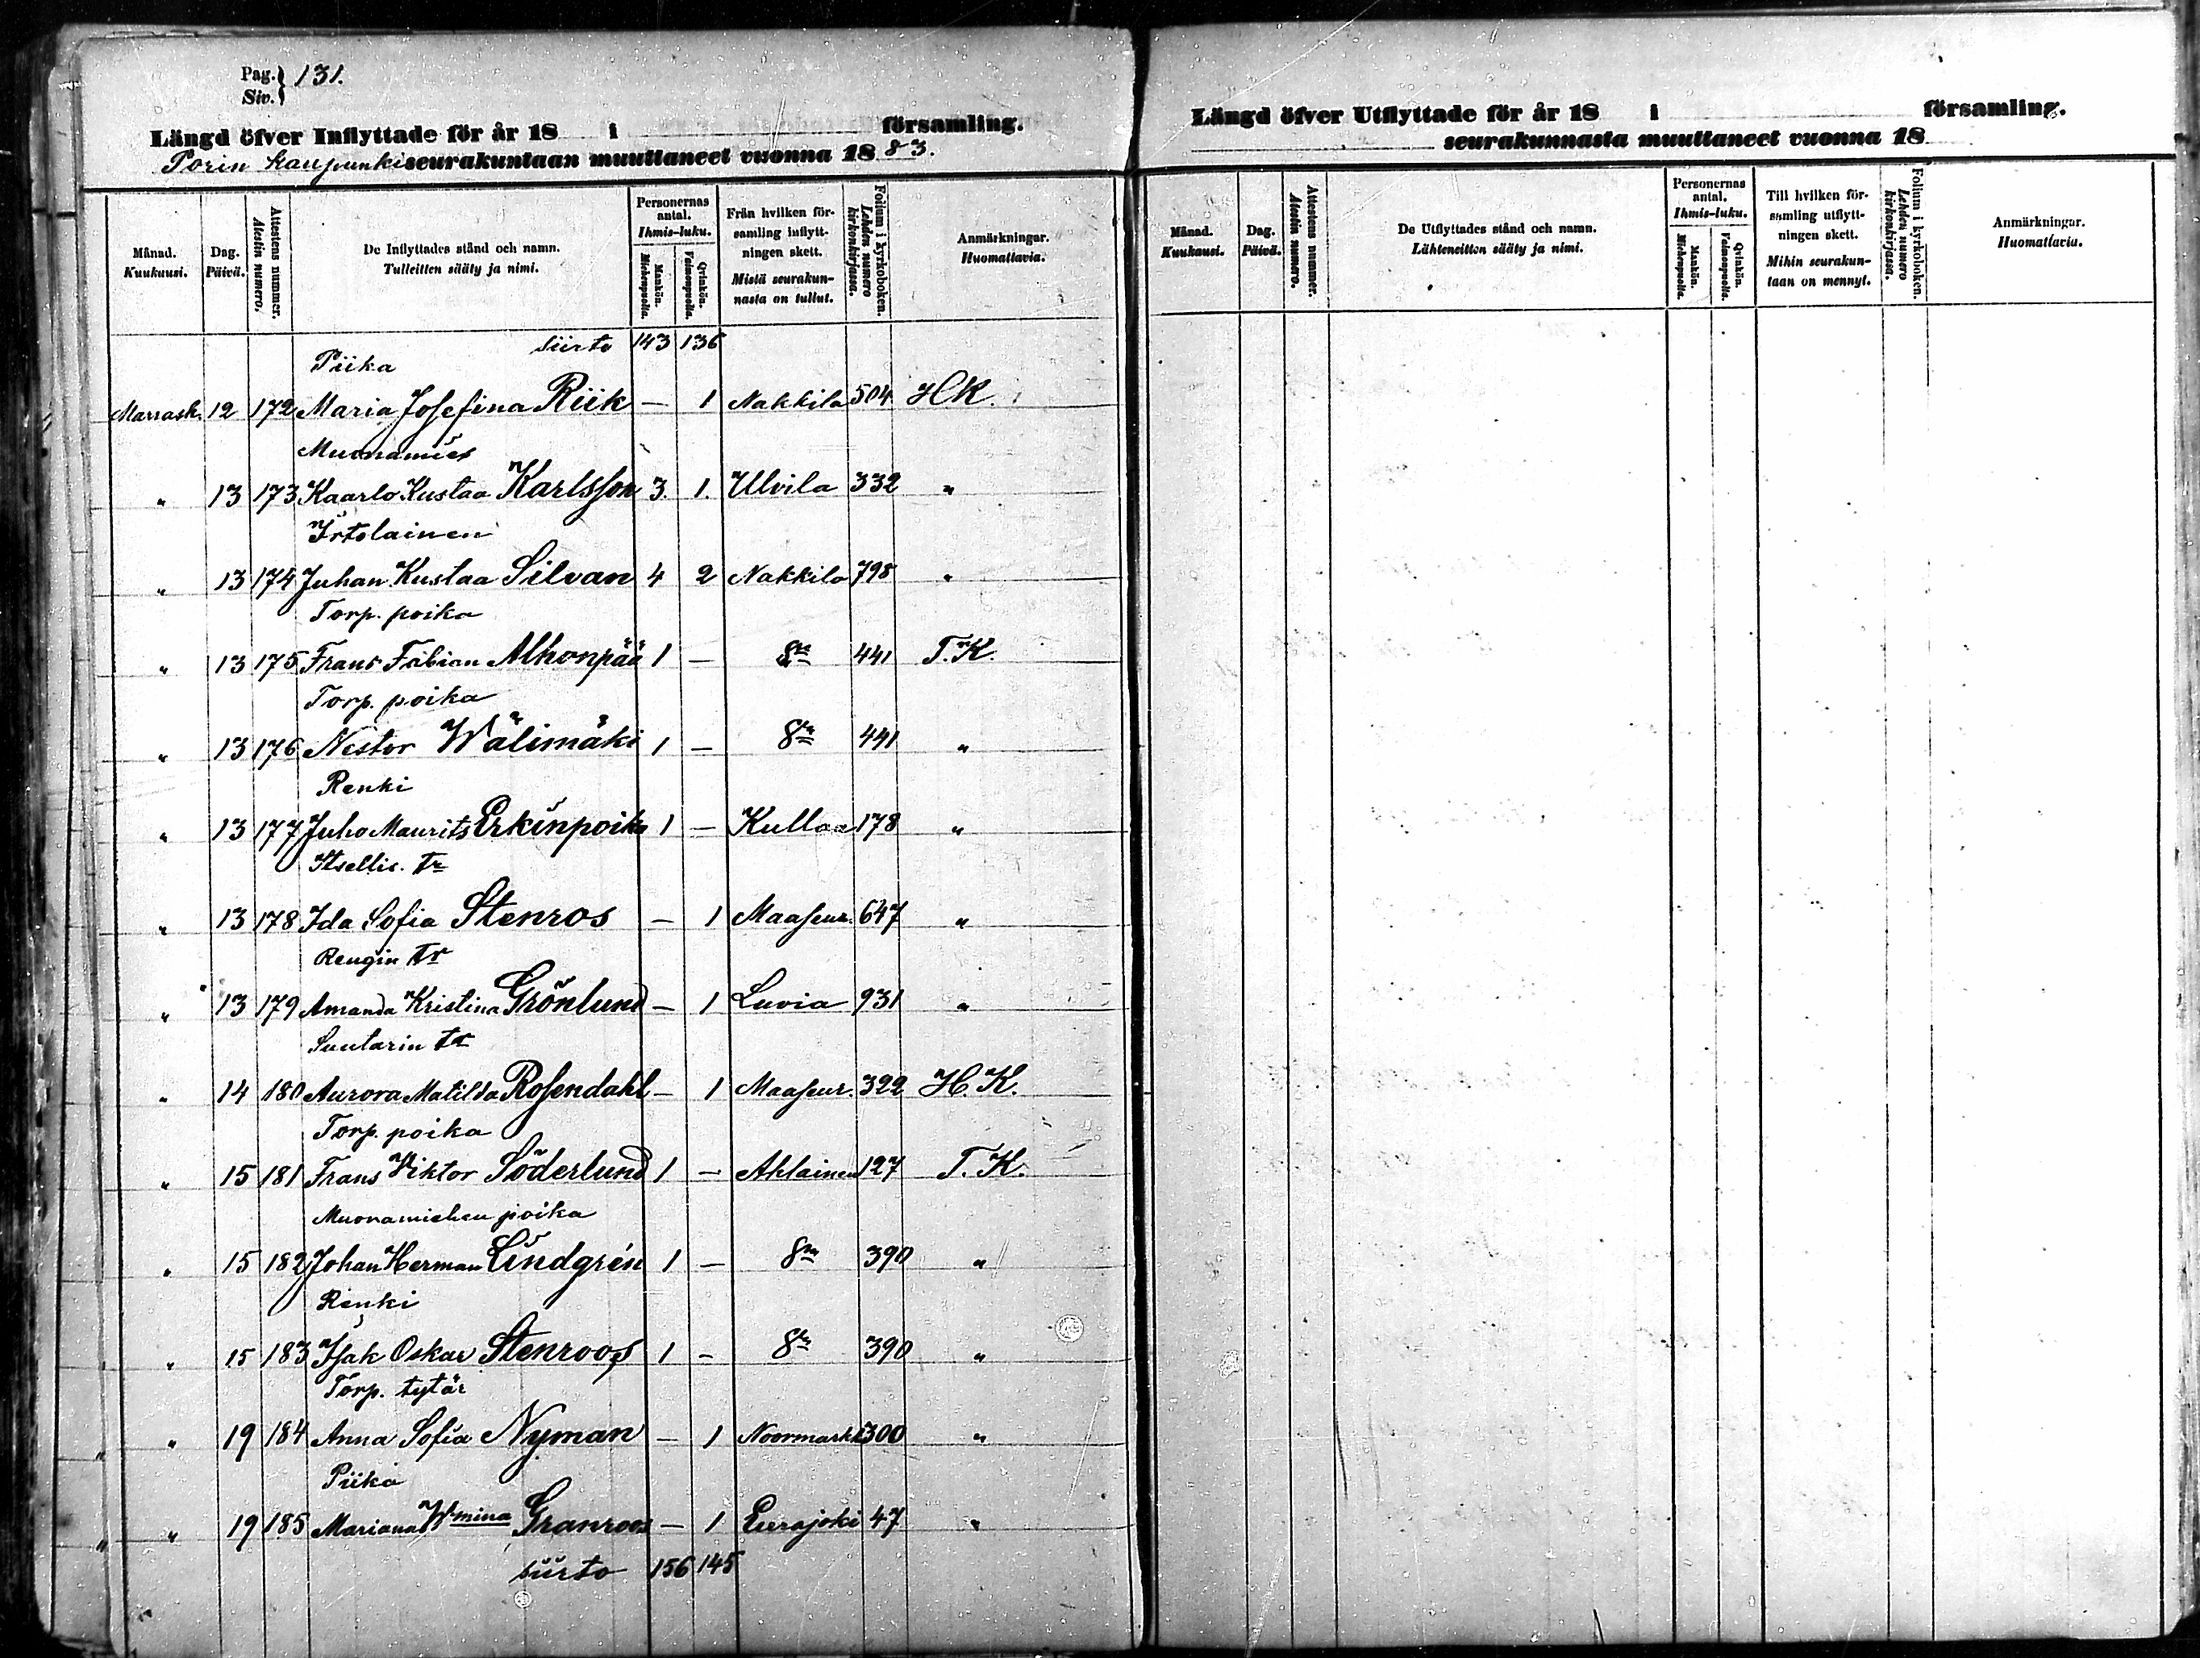 Pag. } 131.
Siv.
Längd öfver Inflyttade för år 18 i församling.
Porin kaupunki seurakuntaan muuttaneet vuonna 18 83.
Månad. Kuukausi.
Dag. Päivä.
Attestens nummer. Atestin numero.
De Inflyttades stånd och namn. Tulleitten sääty ja nimi.
Personernas antal. Ihmis-luku.
Mankön. Miehenpuolia.
Qvinkön. Vaimonpuolia.
Från hvilken församling inflyttningen skett. Mistä seurakunnasta on tullut.
Folium i kyrkoboken. Lehden numero kirkonkirjassa.
Anmärkningar. Huomattavia.
siirto 143 136
Piika
Marrask. 12 172 Maria Josefina Riik — 1 Nakkila 504 H K.
Muonamies
" 13 173 Kaarlo Kustaa Karlsson 3. 1. Ulvila 332 "
Irtolainen
" 13 174 Juhan Kustaa Silvan 4 2 Nakkila 798 "
Torp. poika
" 13 175 Frans Fabian Alhonpää 1 — 8n 441 T. K.
Torp. poika
" 13 176 Nestor Wälimäki 1 — 8n 441 "
Renki
" 13 177 Juho Maurits Erkinpoika 1 — Kullaa 178 "
Itsellis. tr
" 13 178 Ida Sofia Stenros — 1 Maaseur. 647 "
Rengin tr
" 13 179 Amanda Kristina Grönlund — 1 Luvia 931 "
Suutarin tr
" 14 180 Aurora Matilda Rosendahl — 1 Maaseur. 322 H. K.
Torp. poika
" 15 181 Frans Viktor Söderlund 1 — Ahlainen 127 T. K.
Muonamiehen poika
" 15 182 Johan Herman Lindgrén 1 — 8n 390 "
Renki
" 15 183 Isak Oskar Stenroos 1 — 8n 390 "
Torp. tytär
" 19 184 Anna Sofia Nyman — 1 Noormarkk 300 "
Piika
" 19 185 Mariana Wmina Granroos — 1 Eurajoki 47 "
siirto 156 145
Längd öfver Utflyttade för år 18 i församling.
seurakunnasta muuttaneet vuonna 18
Månad. Kuukausi.
Dag. Päivä.
Attestens nummer. Atestin numero.
De Utflyttades stånd och namn. Lähteneitten sääty ja nimi.
Personernas antal. Ihmis-luku.
Mankön. Miehenpuolia.
Qvinkön. Vaimonpuolia.
Till hvilken församling utflyttningen skett. Mihin seurakuntaan on mennyt.
Folium i kyrkoboken. Lehden numero kirkonkirjassa.
Anmärkningar. Huomattavia.